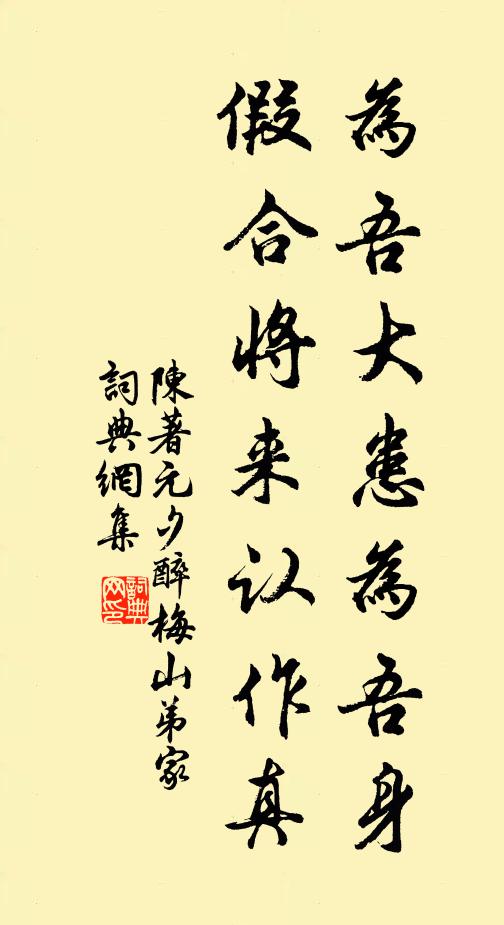 為吾大患為吾身
假合將来认作真
陳著元夕醉梅山弟家
詞典網集
詞典网印